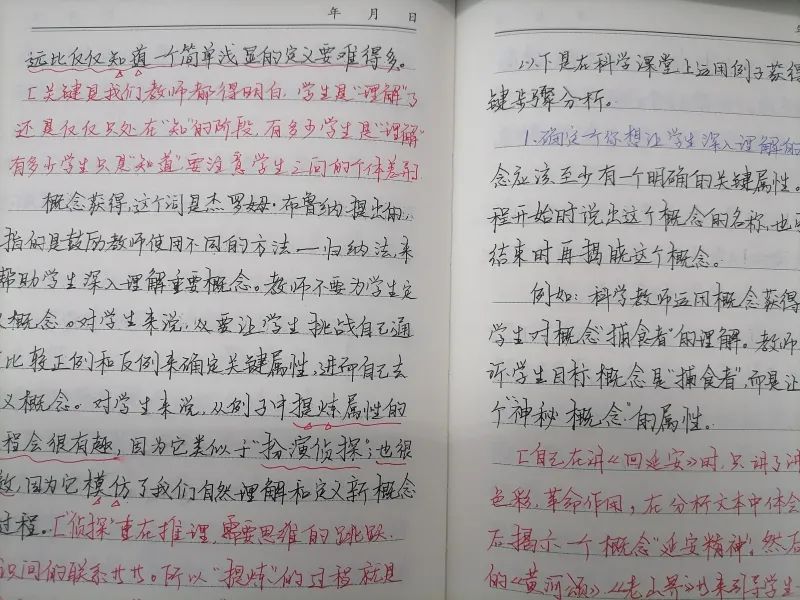 年 月 日
远比仅仅知道一个简单浅显的定义要难得多。
[关键是我们教师都得明白,学生是“理解”了
还是仅仅只处在“知”的阶段,有多少学生是“理解”
有多少学生只是“知道”要注意学生之间的个体差别
概念获得,这个词是杰罗姆·布鲁纳提出的,
指的是鼓励教师使用不同的方法—归纳法,来
帮助学生深入理解重要概念。教师不要为学生定
义概念。对学生来说,必要让学生挑战自己通
过比较正例和反例来确定关键属性,进而自己去
义概念。对学生来说,从例子中提炼属性的
程会很有趣,因为它类似于“扮演侦探”;也很
效,因为它模仿了我们自然理解和定义新概念
过程。[“侦探”重在推理,需要思维的跳跃.
识间的联系等等。所以“提炼”的过程就是
以下是在科学课堂上运用例子获得
键步骤分析。
1.确定一个你想让学生深入理解的
念应该至少有一个明确的关键属性。
程开始时说出这个概念的名称,也可
结束时再揭晓这个概念。
例如:科学教师运用概念获得
学生对概念“捕食者”的理解。教师
诉学生目标概念是“捕食者”,而是让
个“神秘概念”的属性。
[自己在讲《回延安》时,只讲了
色彩,革命作用,在分析文本中体会
后揭示一个概念“延安精神”.然后
的《黄河颂》、《老山界》也来引导学生